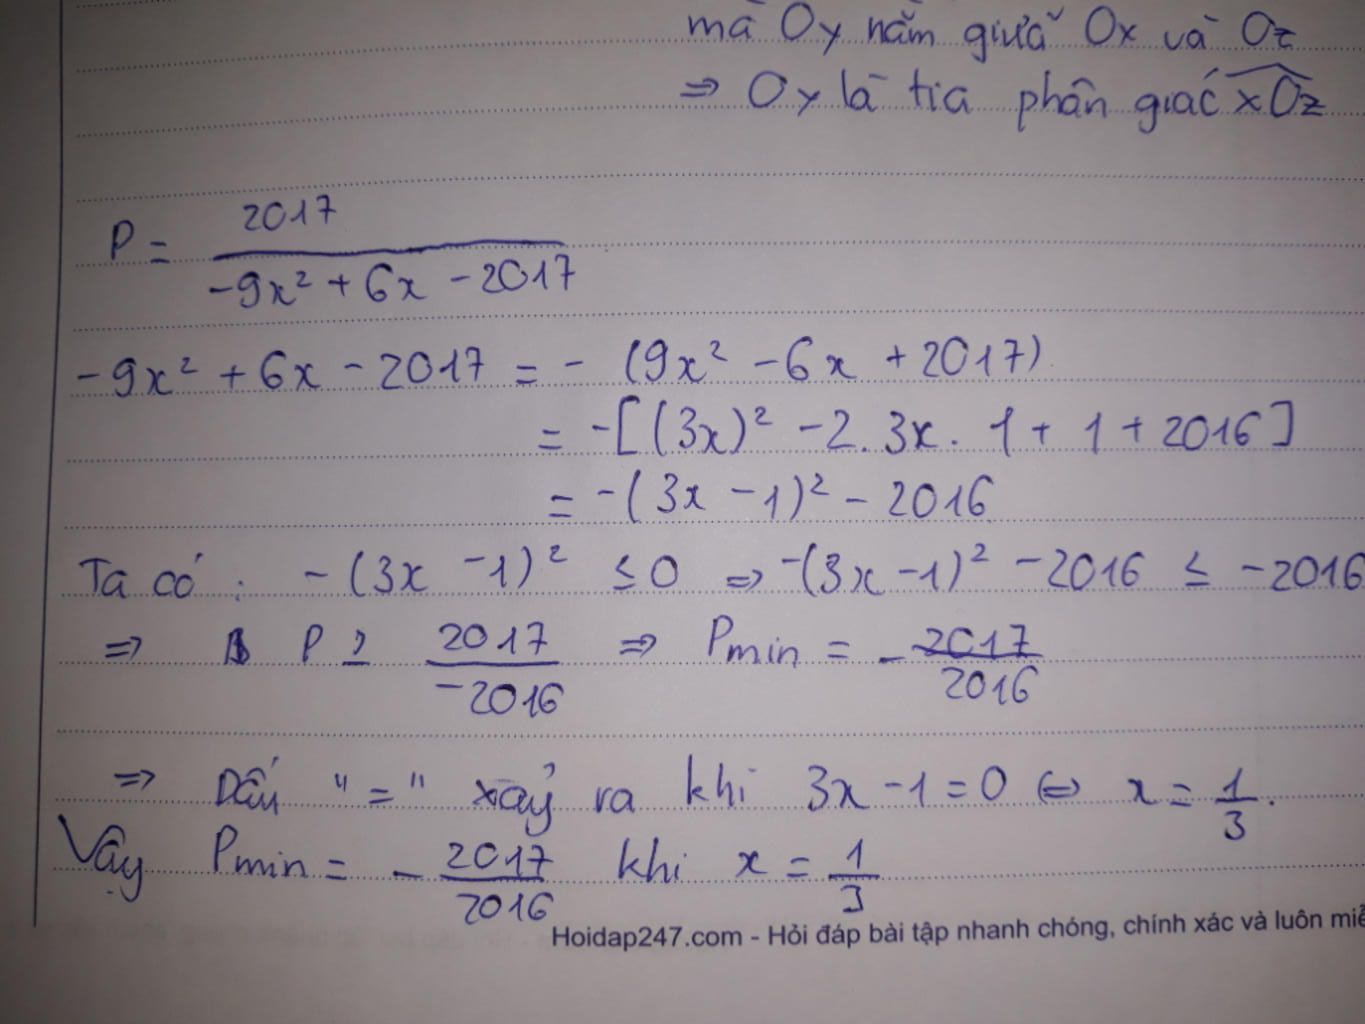 mà Oy nằm giữa Ox và Oz
⇒ Oy là tia phân giác xOz
P = 2017 / -9x² + 6x - 2017
-9x² + 6x - 2017 = - (9x² - 6x + 2017)
= -[(3x)² - 2. 3x. 1 + 1 + 2016]
= -(3x - 1)² - 2016
Ta có : - (3x - 1)² ≤ 0 ⇒ -(3x - 1)² - 2016 ≤ -2016
⇒ P ≥ 2017 / -2016 ⇒ Pmin = - 2017 / 2016
⇒ Dấu "=" xảy ra khi 3x - 1 = 0 ⇔ x = 1 / 3.
Vậy Pmin = - 2017 / 2016 khi x = 1 / 3
Hoidap247.com - Hỏi đáp bài tập nhanh chóng, chính xác và luôn miễ